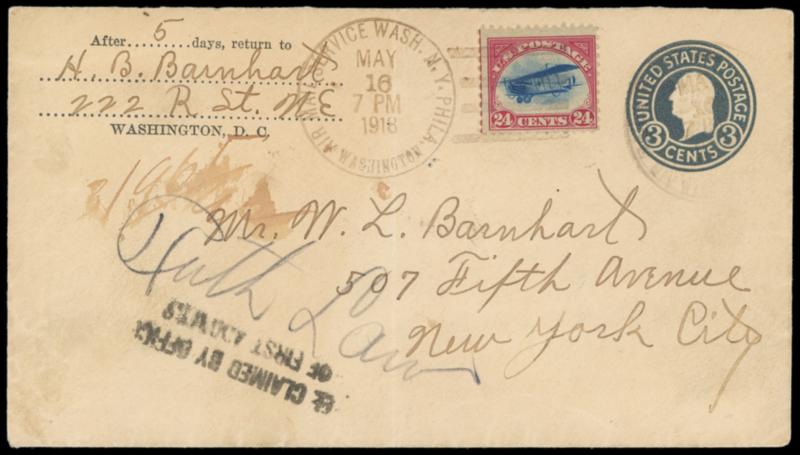 After 5 days, return to
H. B. Barnhart
222 R St. N.E
WASHINGTON, D. C.
AIR MAIL SERVICE WASH. N.Y. PHILA.
MAY
16
7 PM
1918
WASHINGTON
U.S. POSTAGE
24 CENTS 24
UNITED STATES POSTAGE
3 CENTS 3
Mr. W. L. Barnhart
507 Fifth Avenue
New York City
CLAIMED BY OFFICE
OF FIRST ADDRESS